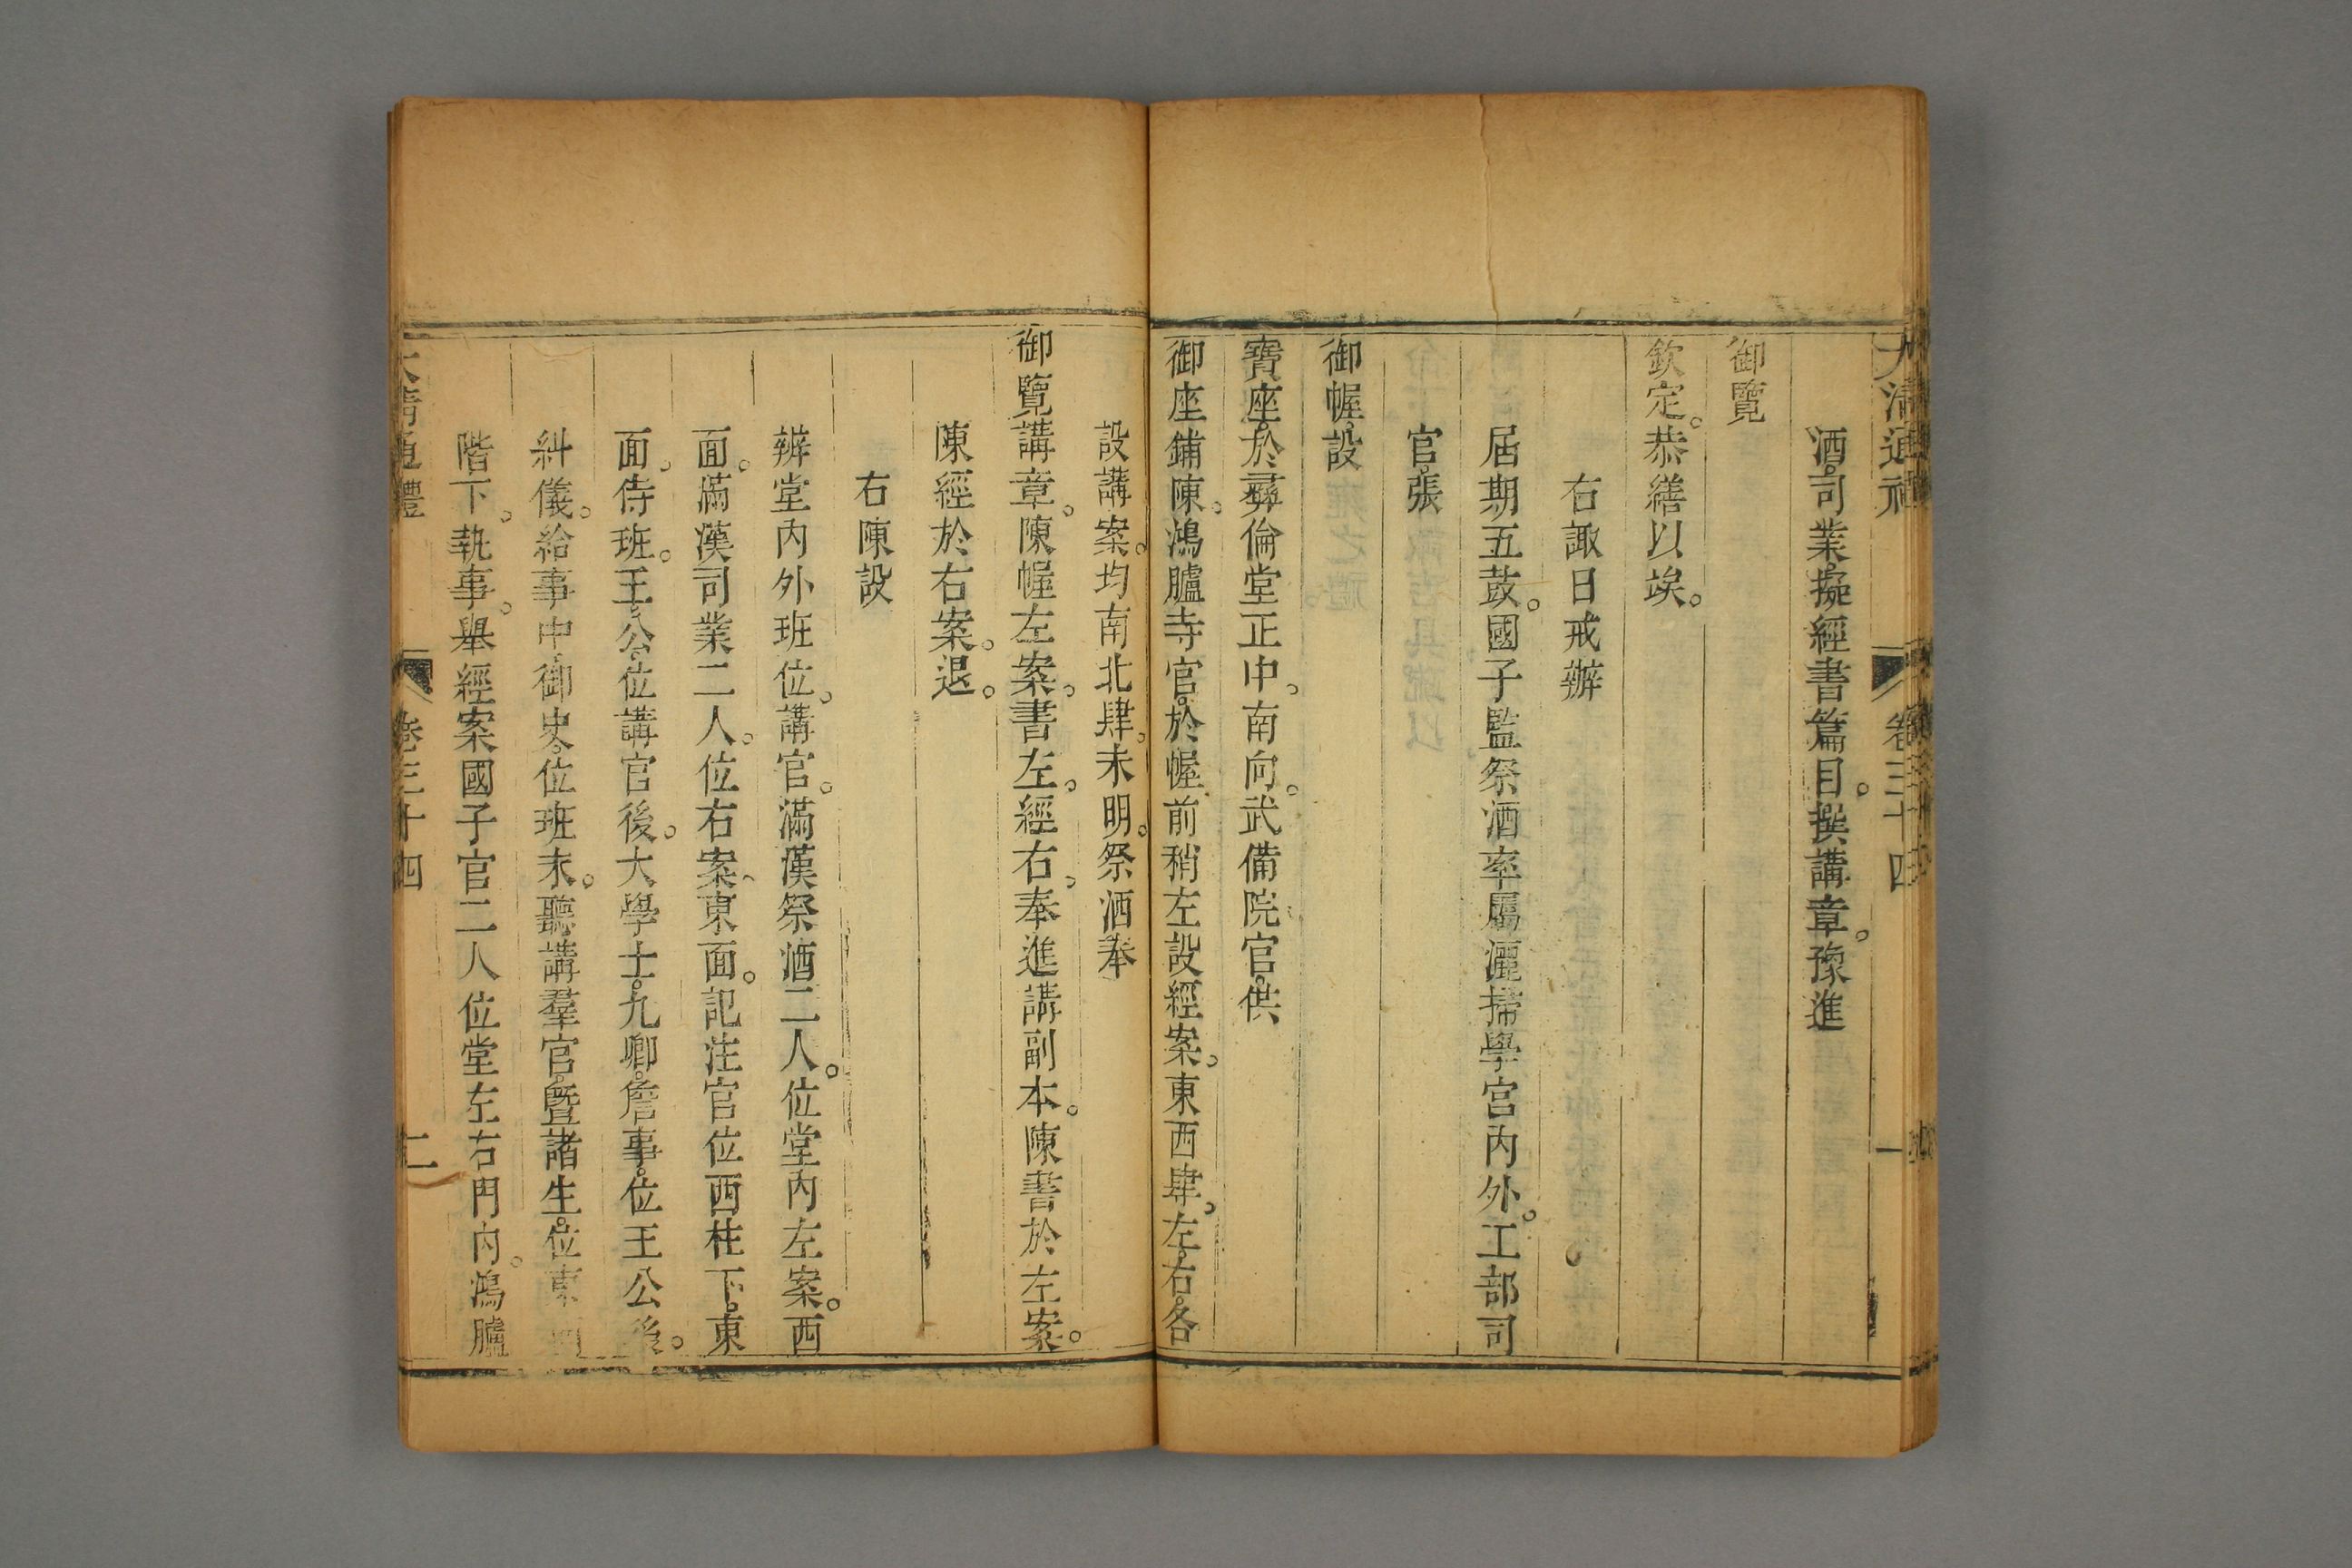 大清通禮 卷三十四 一
酒。司業。擬經書篇目。撰講章。豫進
御覽
欽定。恭繕以竢。
右諏日戒辦
屆期五鼓。國子監祭酒率屬灑掃學宮內外。工部司
官。張
御幄。設
寶座。於彞倫堂正中。南向。武備院官。供
御座鋪陳。鴻臚寺官。於幄前稍左設經案。東西肆。左。右。各
設講案。均南北肆。未明。祭酒奉
御覽講章。陳幄左案。書左。經右。奉進講副本。陳書於左案。
陳經於右案。退。
右陳設
辨堂內外班位。講官。滿漢祭酒二人。位堂內左案。西
面。滿漢司業二人。位右案。東面。記注官位西柱下。東
面。侍班。王公。位講官後。大學士。九卿。詹事。位王公後。
糾儀。給事中。御史。位班末。聽講羣官。曁諸生。位東
階下。執事。舉經案國子官二人位堂左右門內。鴻臚
大清通禮 卷三十四 二